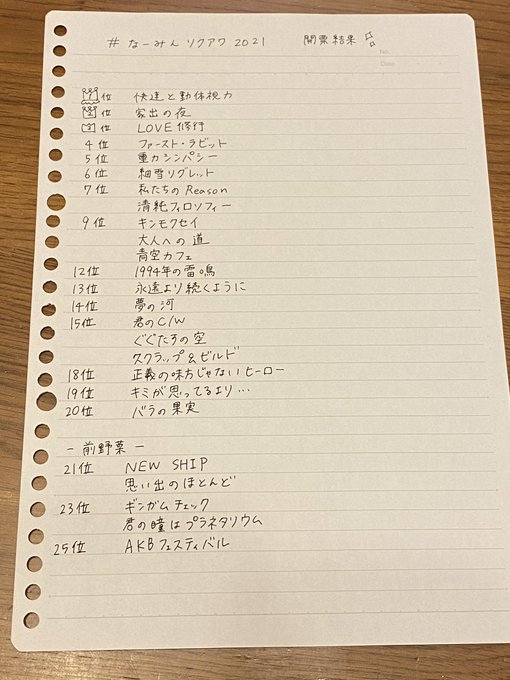 # なーみんリクアワ 2021 開票結果
No.
Date
1位 快速と動体視力
2位 家出の夜
3位 LOVE修行
4位 ファースト・ラビット
5位 重力シンパシー
6位 細雪リグレット
7位 私たちのReason
清純フィロソフィー
9位 キンモクセイ
大人への道
青空カフェ
12位 1994年の雷鳴
13位 永遠より続くように
14位 夢の河
15位 君のC/W
ぐぐたすの空
スクラップ&ビルド
18位 正義の味方じゃないヒーロー
19位 キミが思ってるより…
20位 バラの果実
- 前野菜 -
21位 NEW SHIP
思い出のほとんど
23位 ギンガムチェック
君の瞳はプラネタリウム
25位 AKBフェスティバル